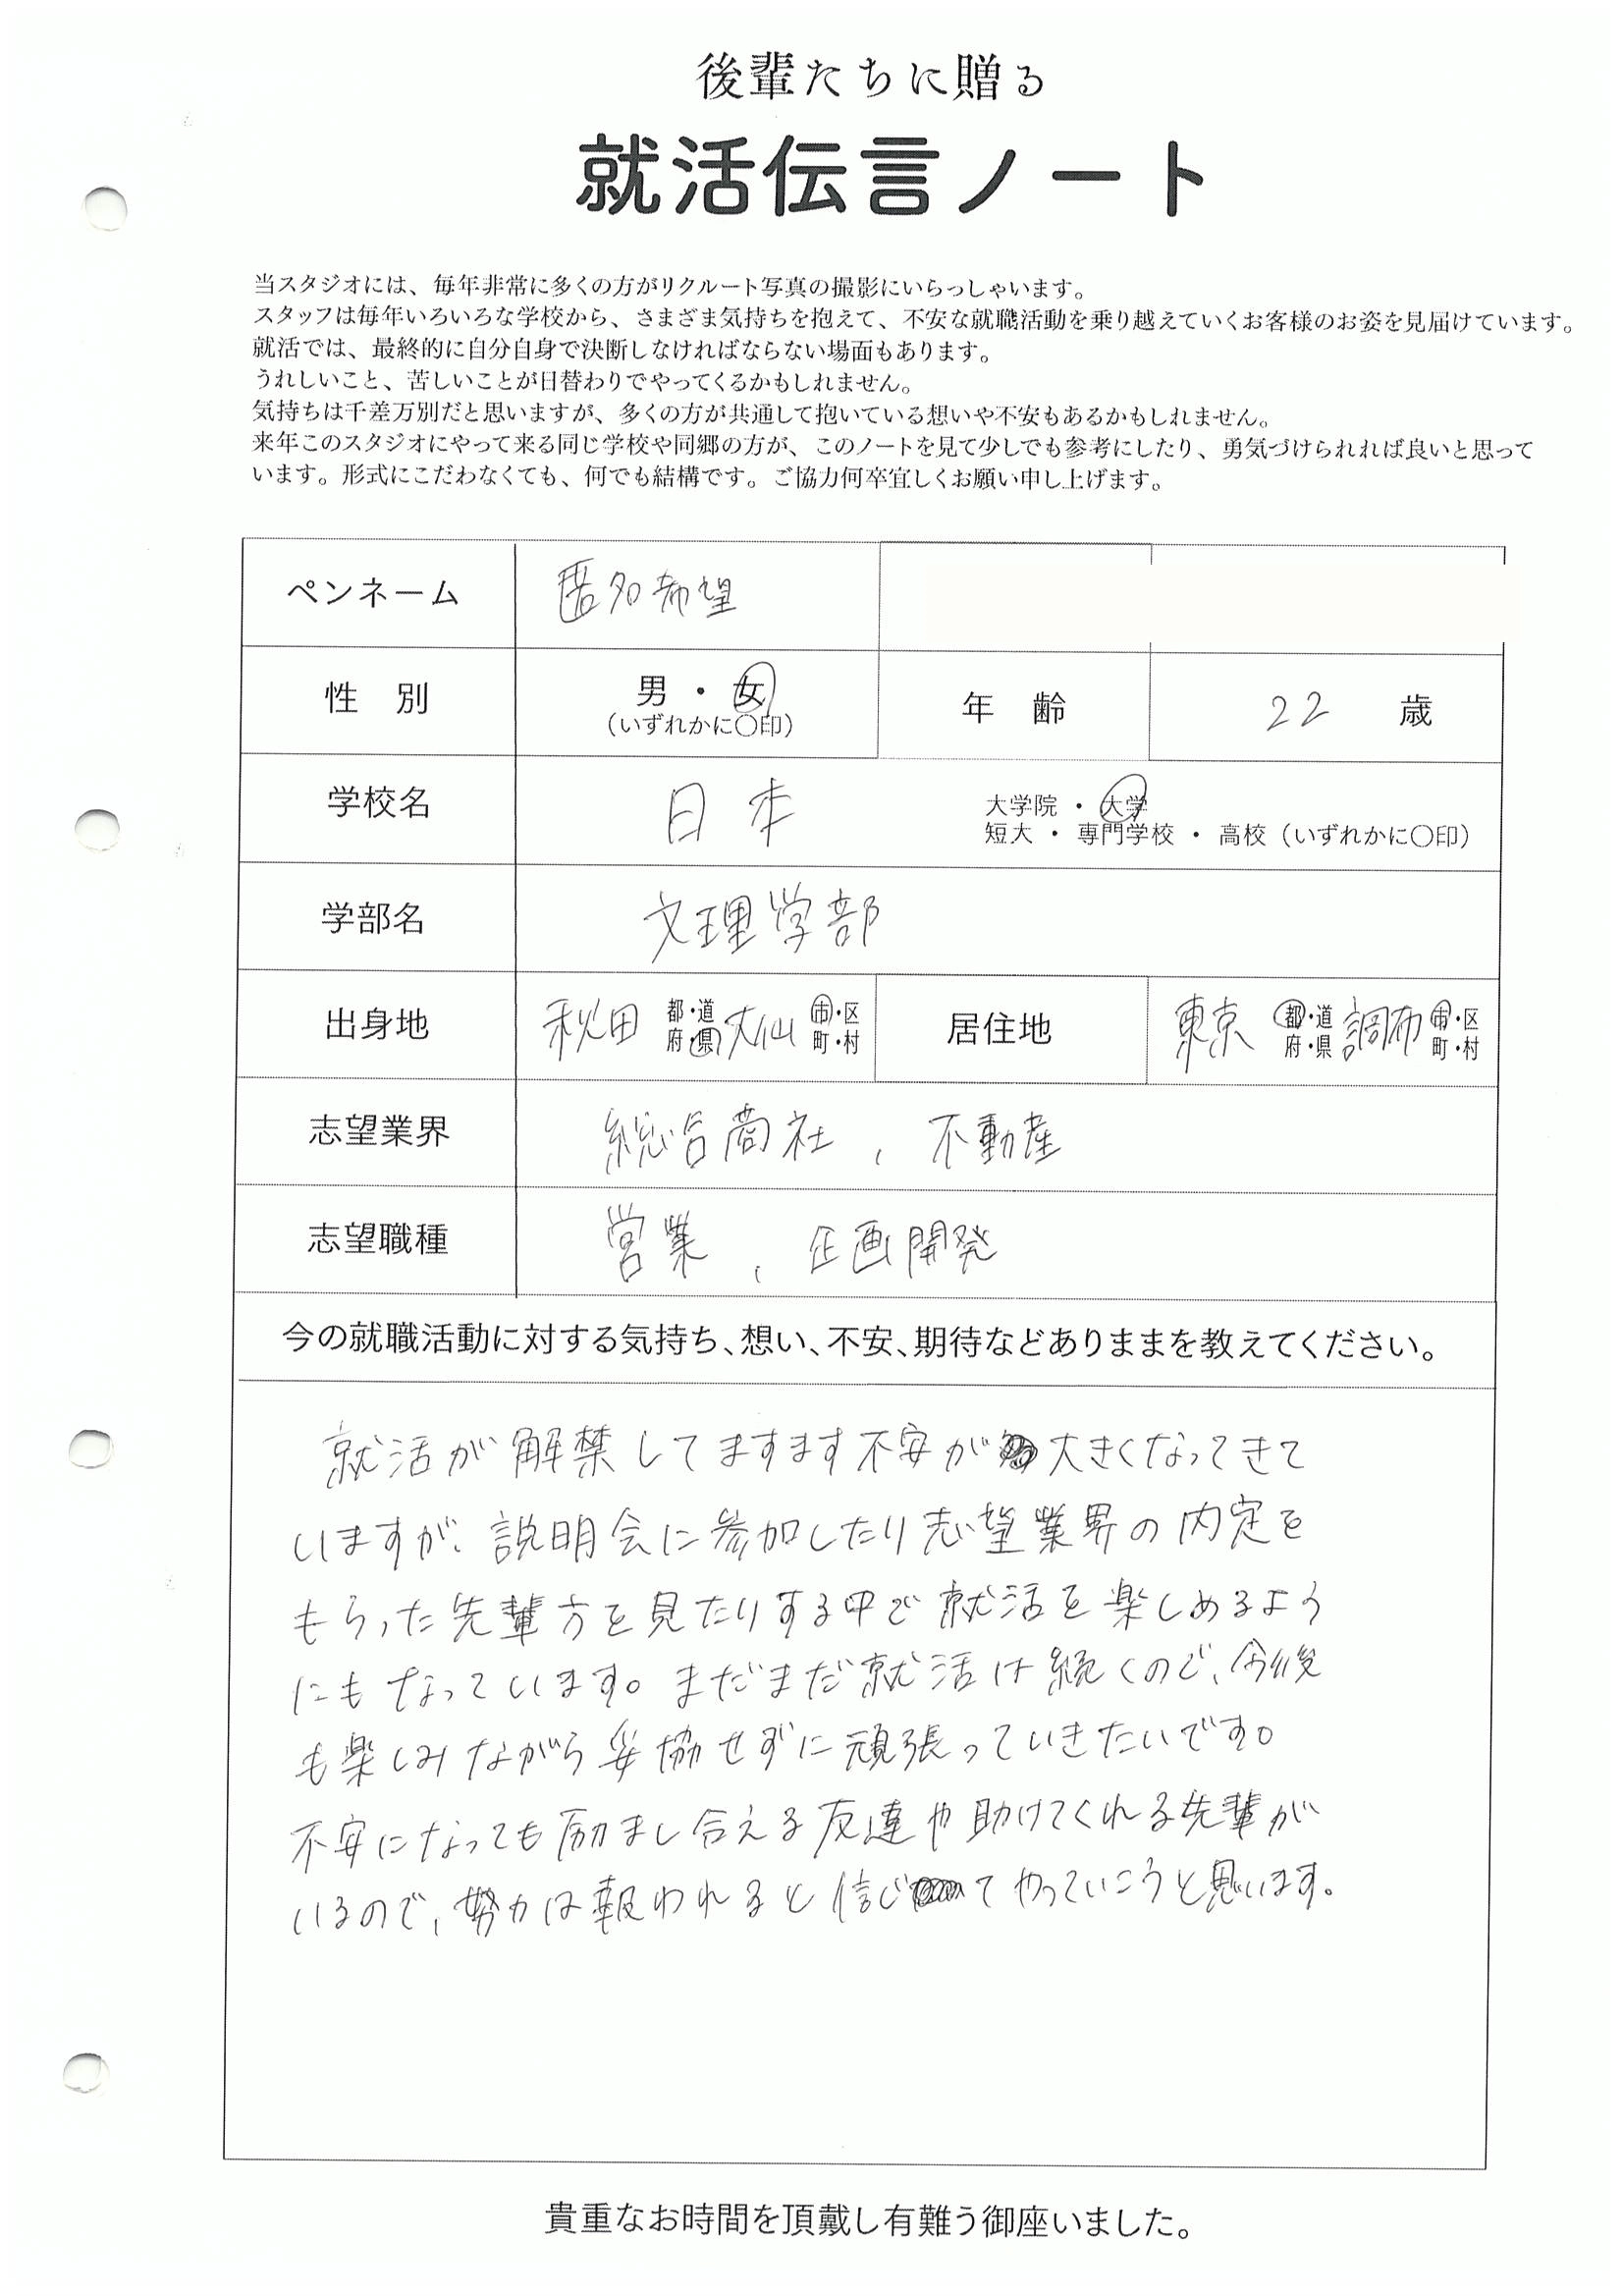 後輩たちに贈る
就活伝言ノート
当スタジオには、毎年非常に多くの方がリクルート写真の撮影にいらっしゃいます。
スタッフは毎年いろいろな学校から、さまざま気持ちを抱えて、不安な就職活動を乗り越えていくお客様のお姿を見届けています。
就活では、最終的に自分自身で決断しなければならない場面もあります。
うれしいこと、苦しいことが日替わりでやってくるかもしれません。
気持ちは千差万別だと思いますが、多くの方が共通して抱いている想いや不安もあるかもしれません。
来年このスタジオにやって来る同じ学校や同郷の方が、このノートを見て少しでも参考にしたり、勇気づけられれば良いと思って
います。形式にこだわなくても、何でも結構です。ご協力何卒宜しくお願い申し上げます。
ペンネーム 匿名希望
性 別 男 ・ 女 (いずれかに〇印) 年 齢 22 歳
学校名 日本 大学院 ・ 大学
短大 ・ 専門学校 ・ 高校 (いずれかに〇印)
学部名 文理学部
出身地 秋田 都・道 府・県 大仙 市・区 町・村 居住地 東京 都・道 府・県 調布 市・区 町・村
志望業界 総合商社、不動産
志望職種 営業、企画開発
今の就職活動に対する気持ち、想い、不安、期待などありままを教えてください。
就活が解禁してますます不安が大きくなってきて
いますが、説明会に参加したり志望業界の内定を
もらった先輩方を見たりする中で就活を楽しめるよう
にもなっています。まだまだ就活は続くので、今後
も楽しみながら妥協せずに頑張っていきたいです。
不安になっても励まし合える友達や助けてくれる先輩が
いるので、努力は報われると信じてやっていこうと思います。
貴重なお時間を頂戴し有難う御座いました。